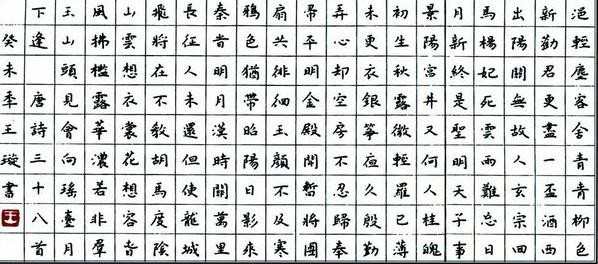 浥輕塵客舍青青柳色
新勸君更盡一盃酒西
出陽關無故人玄宗回
馬楊妃死雲雨難忘日
月新終是聖明天子事
景陽宮井又何人桂魄
初生秋露微輕羅已薄
未更衣銀箏夜久殷勤
弄心却空房不忍歸奉
帚平明金殿開暫將團
扇共徘徊玉顏不及寒
鴉色猶帶昭陽日影來
秦旹明月漢時關萬里
長征人未還但使龍城
飛將在不教胡馬度陰
山雲想衣裳花想容旾
風拂檻露華濃若非羣
玉山頭見會向瑤臺月
下逢 唐詩三十八首
癸未秊王璇書
王